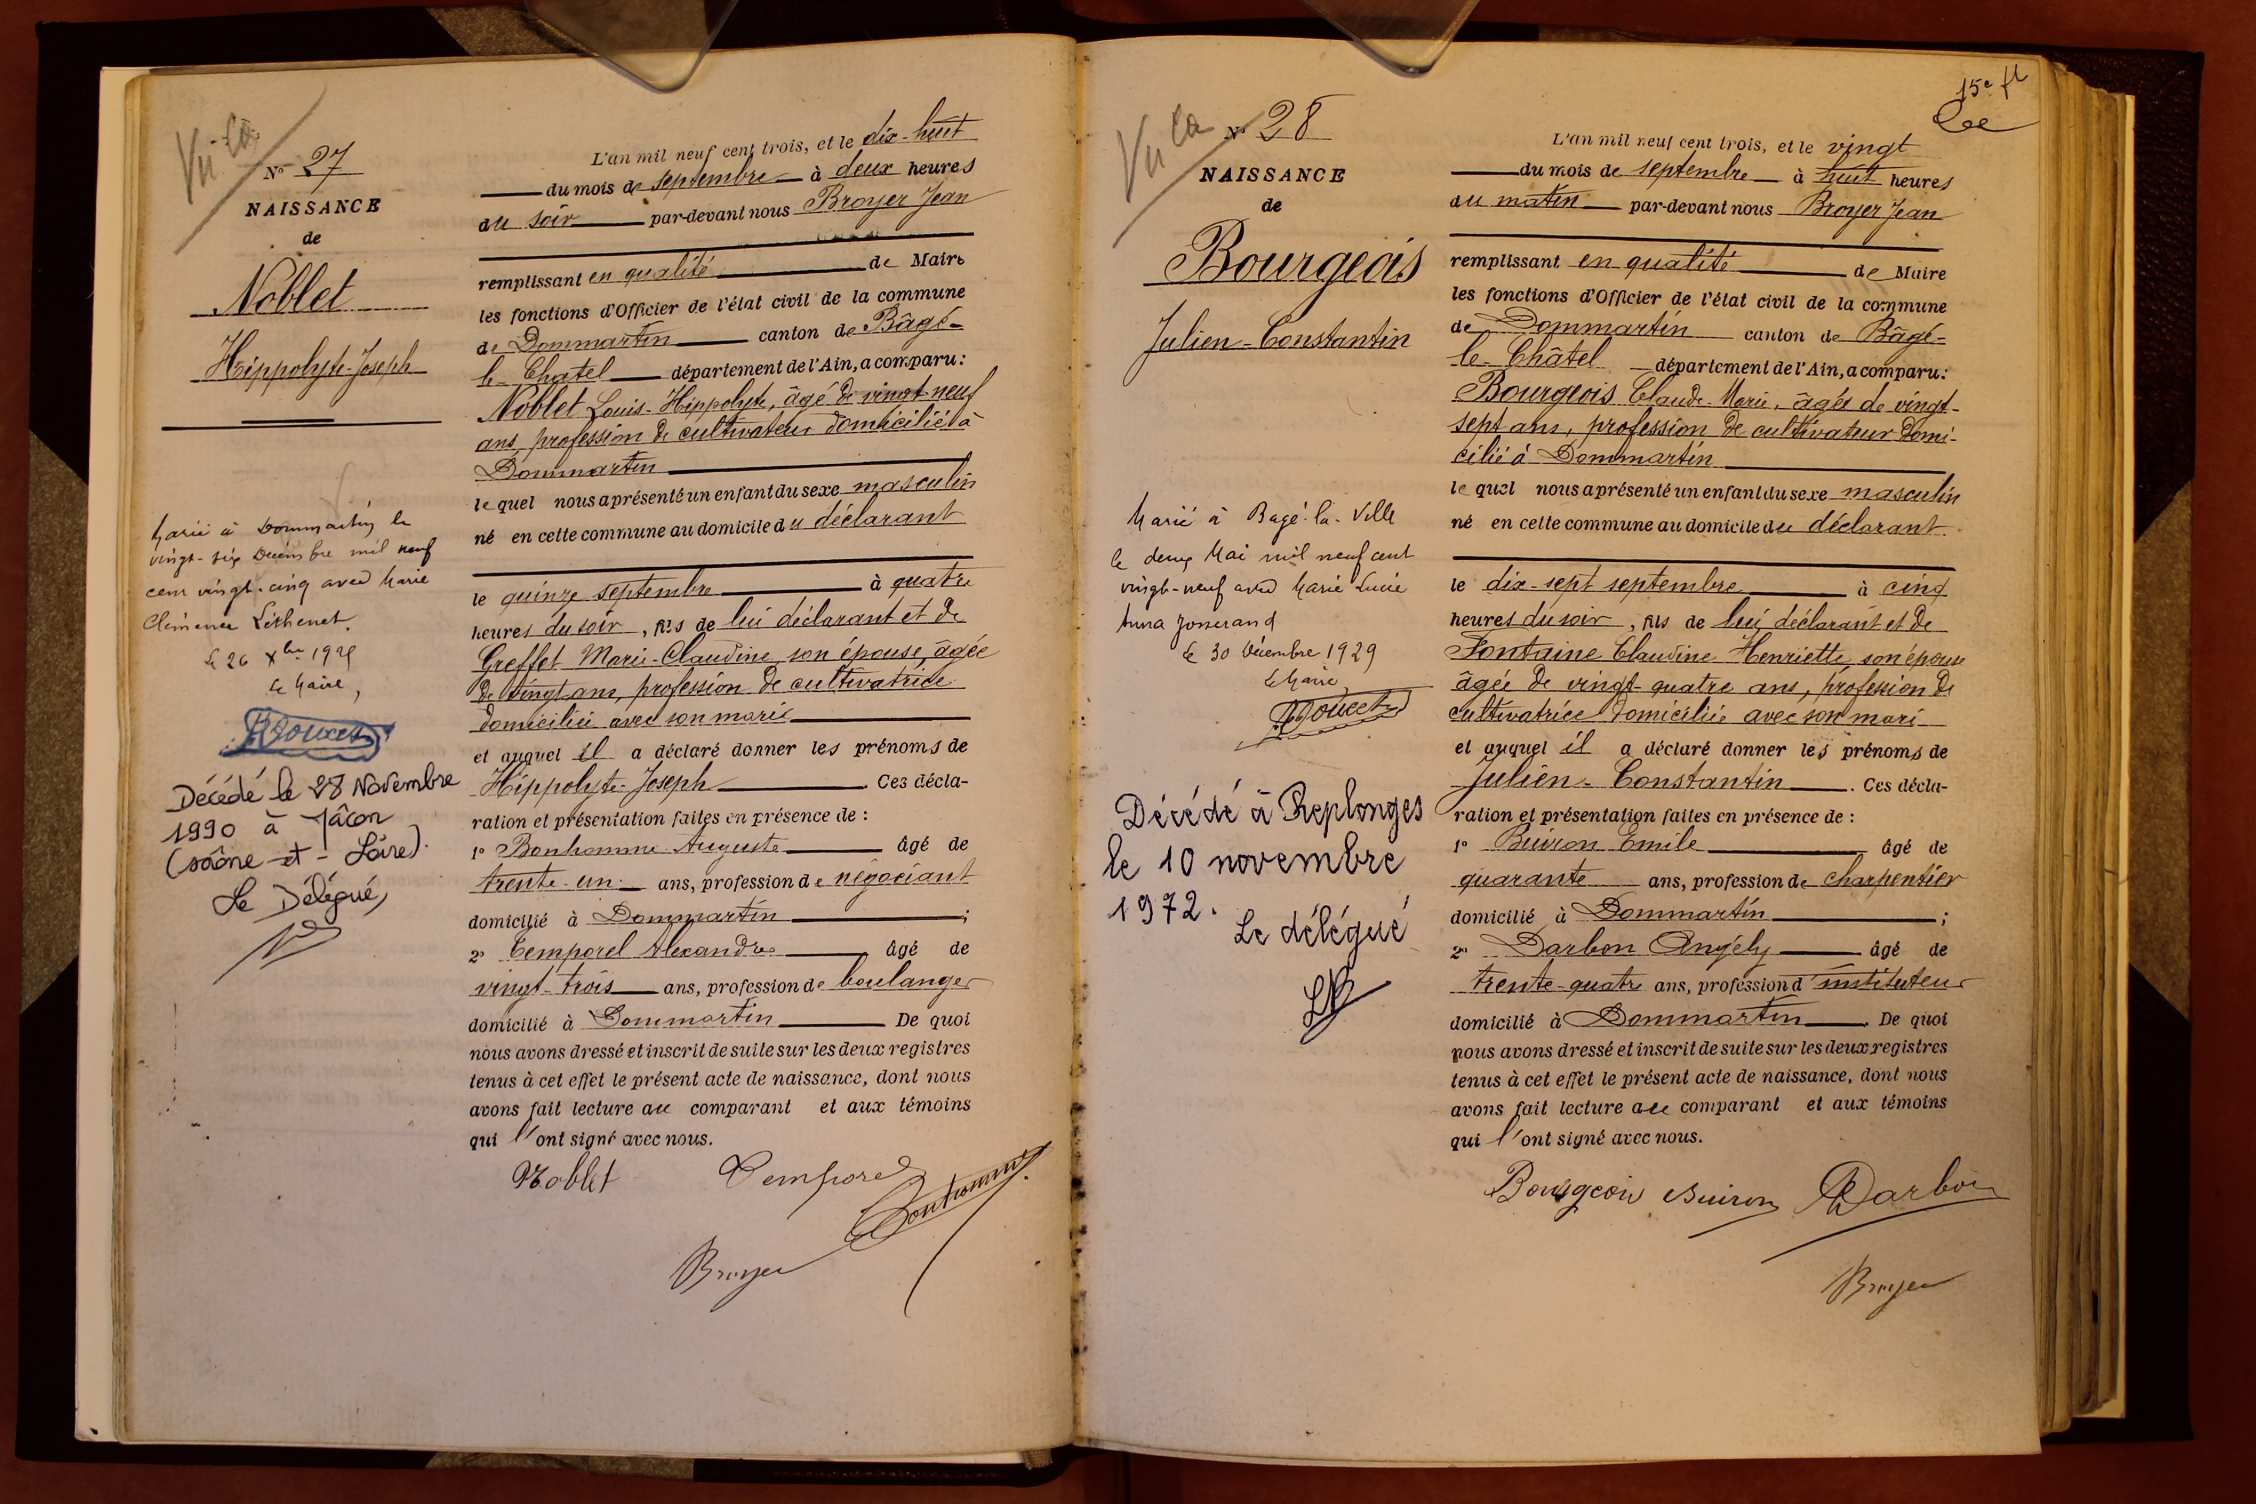 Vu ca
N° 27
NAISSANCE
de
Noblet
Hippolyte-Joseph
Marié à Dommartin le
vingt-six Décembre mil neuf
cent vingt-cinq avec Marie
Clémence Léthenet.
Le 26 Xbre 1925
Le Maire,
Décédé le 28 Novembre
1990 à Mâcon
(Saône-et-Loire).
Le Délégué,
L'an mil neuf cent trois, et le dix-huit
du mois de septembre à deux heures
du soir par-devant nous Broyer Jean
remplissant en qualité de Maire
les fonctions d'Officier de l'état civil de la commune
de Dommartin canton de Bâgé-
le-Chatel département de l'Ain, a comparu:
Noblet Louis-Hippolyte, âgé de vingt-neuf
ans, profession de cultivateur domicilié à
Dommartin
lequel nous a présenté un enfant du sexe masculin
né en cette commune au domicile du déclarant
le quinze septembre à quatre
heures du soir, fils de lui déclarant et de
Greffet Marie-Claudine son épouse, âgée
de vingt ans, profession de cultivatrice
domiciliée avec son mari
et auquel il a déclaré donner les prénoms de
Hippolyte-Joseph. Ces décla-
ration et présentation faites en présence de :
1° Bonhomme Auguste âgé de
trente-un ans, profession de négociant
domicilié à Dommartin ;
2° Temporel Alexandre âgé de
vingt-trois ans, profession de boulanger
domicilié à Dommartin De quoi
nous avons dressé et inscrit de suite sur les deux registres
tenus à cet effet le présent acte de naissance, dont nous
avons fait lecture au comparant et aux témoins
qui l'ont signé avec nous.
Noblet Temporel
Bonhomme
Broyer
15e ft
Vu ca
N° 28
NAISSANCE
de
Bourgeois
Julien-Constantin
Marié à Bagé-la-Ville
le deux Mai mil neuf cent
vingt-neuf avec Marie Lucie
Anna Jonnerand
Le 30 Décembre 1929
Le Maire
Doucet
Décédé à Replonges
le 10 novembre
1972.
Le délégué
L'an mil neuf cent trois, et le vingt
du mois de septembre à huit heures
du matin par-devant nous Broyer Jean
remplissant en qualité de Maire
les fonctions d'Officier de l'état civil de la commune
de Dommartin canton de Bâgé-
le-Châtel département de l'Ain, a comparu:
Bourgeois Claude-Marie, âgé de vingt-
sept ans, profession de cultivateur domi-
cilié à Dommartin
lequel nous a présenté un enfant du sexe masculin
né en cette commune au domicile du déclarant
le dix-sept septembre à cinq
heures du soir, fils de lui déclarant et de
Fontaine Claudine Henriette, son épouse
âgée de vingt-quatre ans, profession de
cultivatrice domiciliée avec son mari
et auquel il a déclaré donner les prénoms de
Julien-Constantin. Ces décla-
ration et présentation faites en présence de :
1° Buiron Emile âgé de
quarante ans, profession de charpentier
domicilié à Dommartin ;
2° Darbon Angély âgé de
trente-quatre ans, profession d'instituteur
domicilié à Dommartin. De quoi
nous avons dressé et inscrit de suite sur les deux registres
tenus à cet effet le présent acte de naissance, dont nous
avons fait lecture au comparant et aux témoins
qui l'ont signé avec nous.
Bourgeois Buiron Darbon
Broyer